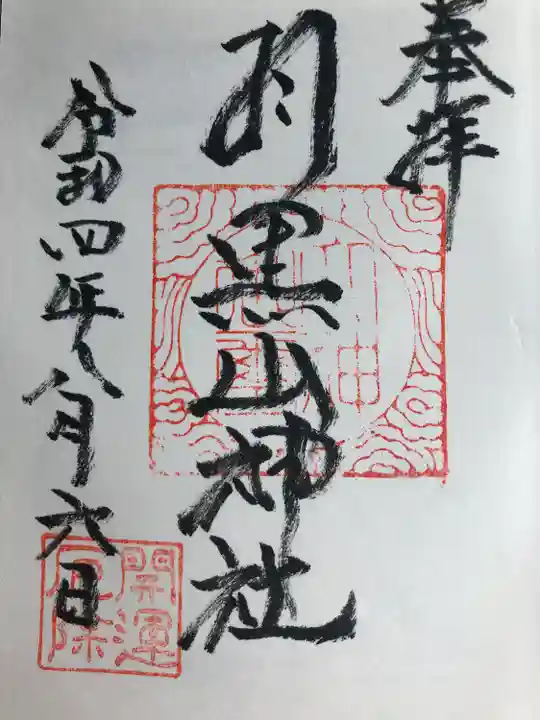 奉拝
羽黒山神社
令和四年八月六日
開運
厄除